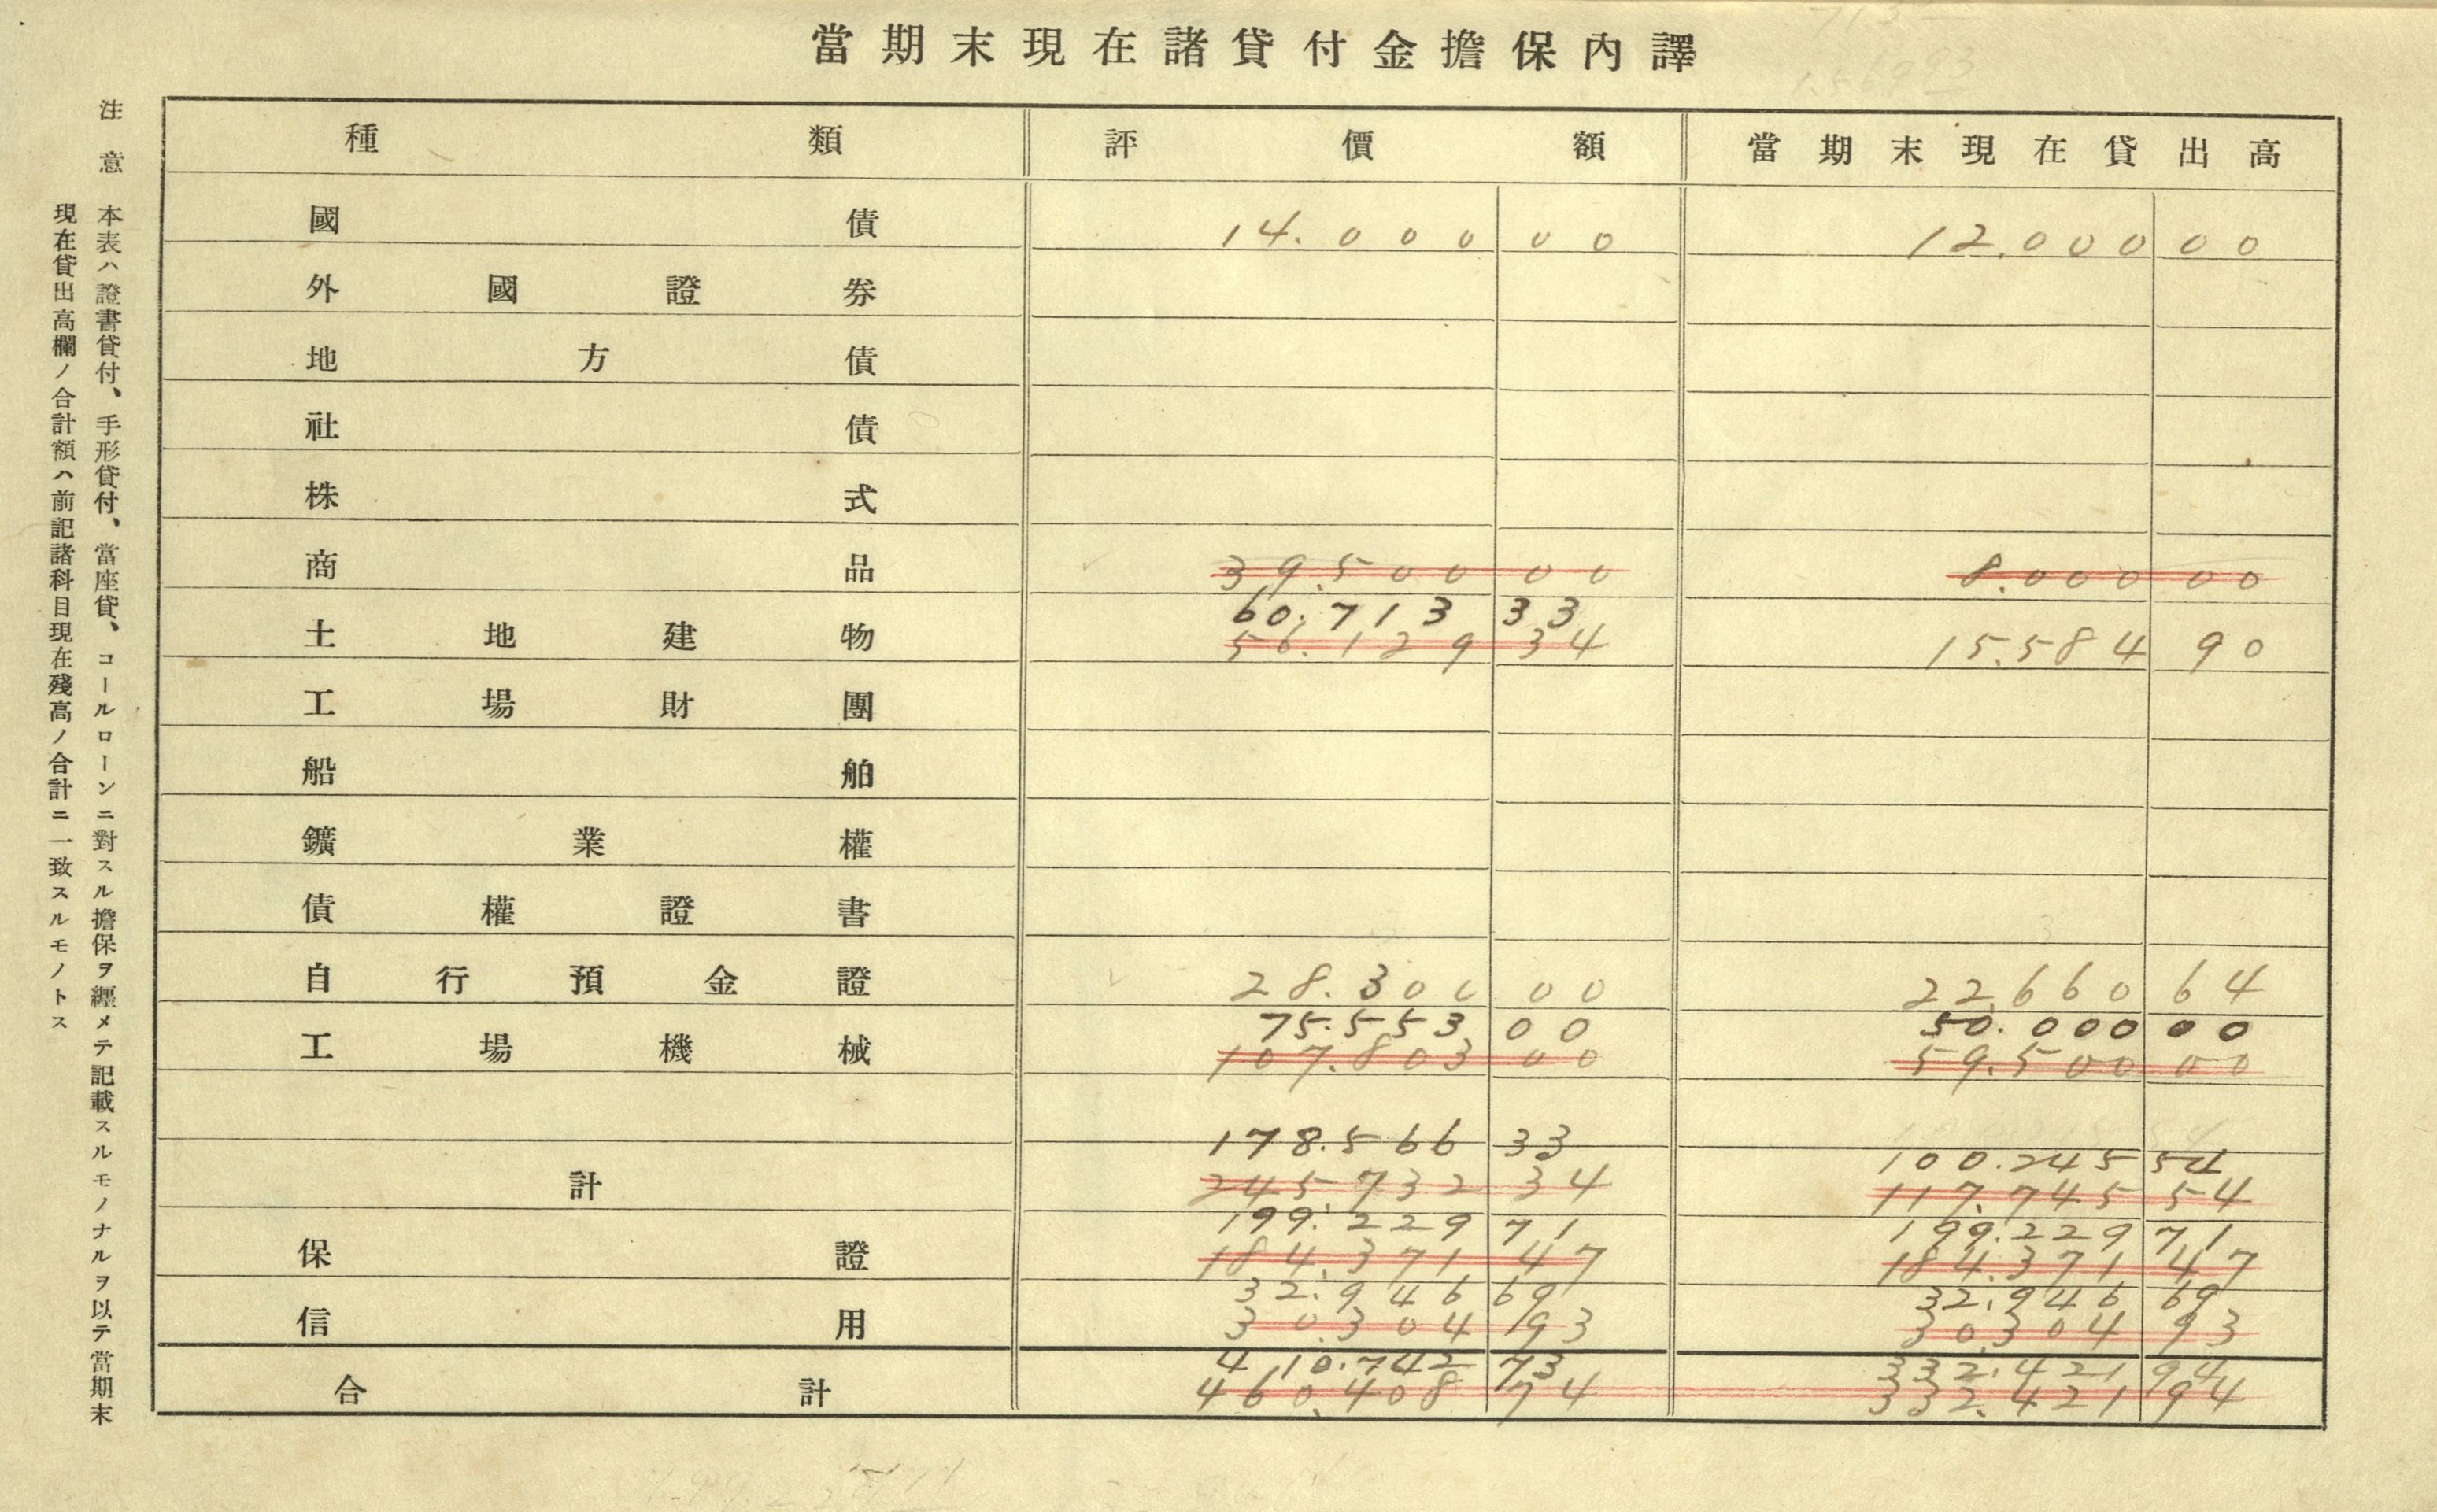 當期末現在諸貸付金擔保內譯
種類 評價額 當期末現在貸出高
國債 14.000 00 12.000 00
外國證券
地方債
社債
株式
商品 39.500 00 8.000 00
60.713 33
土地建物 56.129 34 15.584 90
工場財團
船舶
鑛業權
債權證書
自行預金證 28.300 00 22.660 64
75.553 00 50.000 00
工場機械 107.803 00 59.500 00
178.566 33 100.245 54
計 245.732 34 117.745 54
199.229 71 199.229 71
保證 184.371 47 184.371 47
32.946 69 32.946 69
信用 30.304 93 30.304 93
410.742 73 332.421 94
合計 460.408 74 332.421 94
注意 本表ハ證書貸付、手形貸付、當座貸、コールローンニ對スル擔保ヲ纒メテ記載スルモノナルヲ以テ當期末
現在貸出高欄ノ合計額ハ前記諸科目現在殘高ノ合計ニ一致スルモノトス